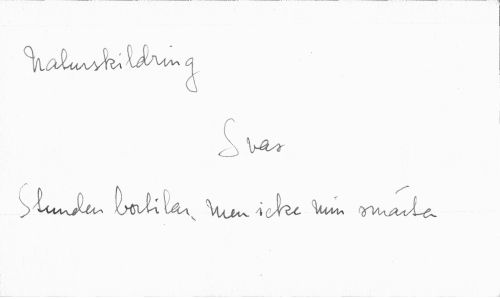 Naturskildring
Svar
Stunden bortilar, men icke min smärta